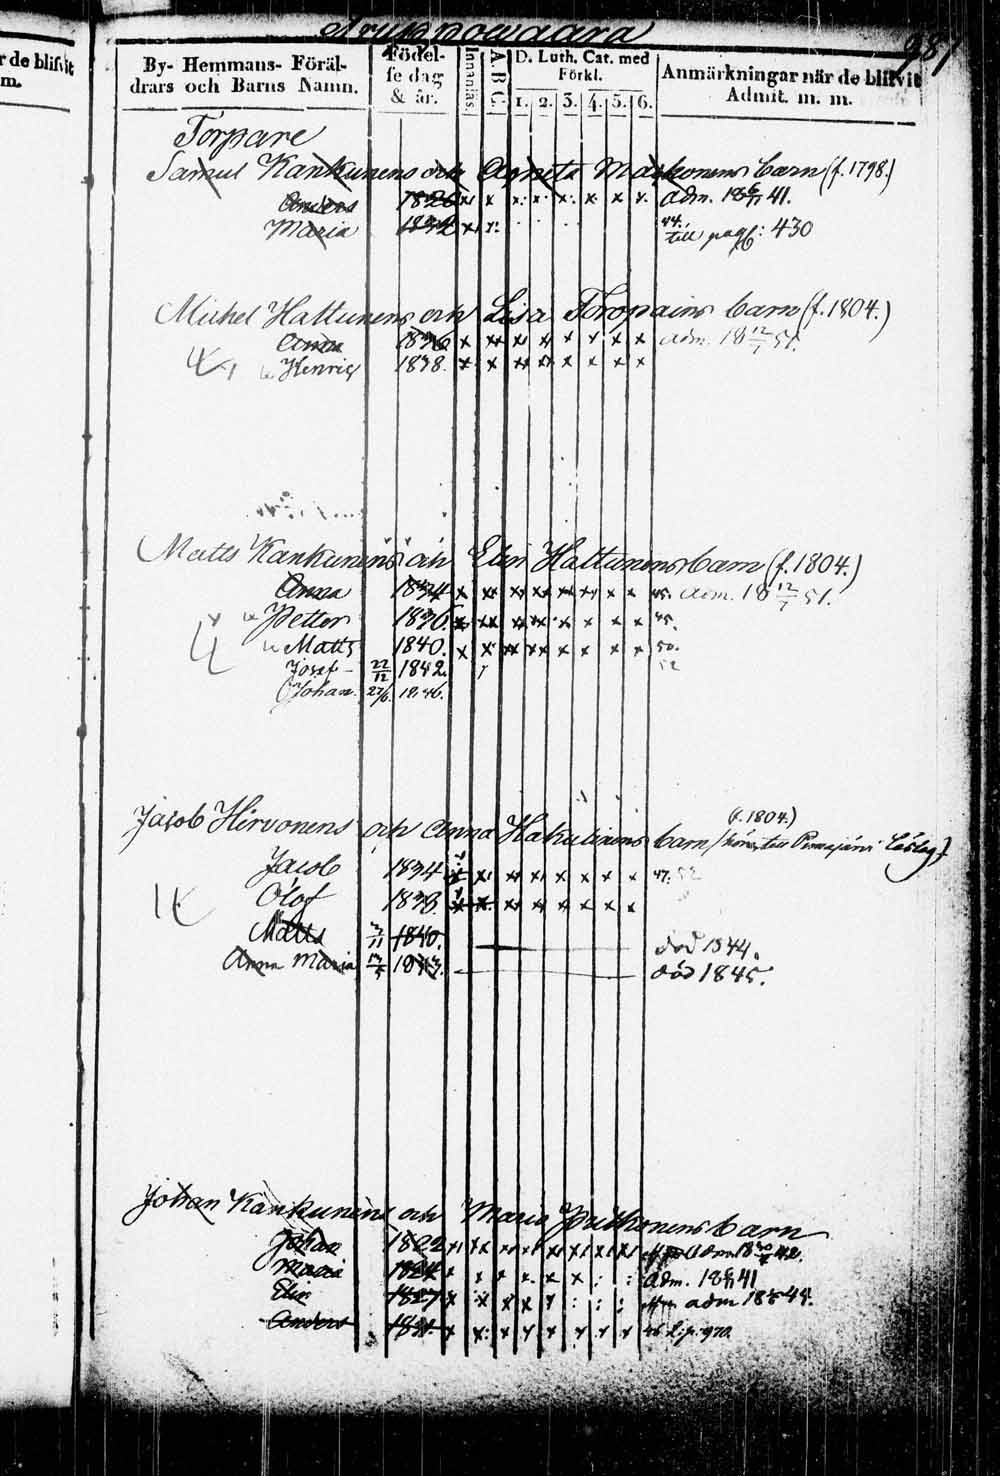 981
r de blifvit
m.
By- Hemmans- Föräl-
drars och Barns Namn.
Födel-
se dag
& år.
Innanläs.
A B C.
D. Luth. Cat. med
Förkl.
1. 2. 3. 4. 5. 6.
Anmärkningar när de blifvit
Admit. m. m.
Torpare
Samul Kankunens och Agneta barn (f. 1798.)
Anders 1826 x x x x x x x x adm. 18 41.
Maria 1832 x x 44. till pag: 430
Michel Hattunens och Lisa Toropains barn (f. 1804.)
Anna 1836 x x x x x x x x adm. 18 12/7 51.
Henric 1838. x x x x x x x x
Matts Kankunens och Elin Hattunens barn (f. 1804.)
Anna 1834 x x x x x x x x 45. adm. 18 12/7 51.
Petter 1836 x x x x x x x x 45.
Matts 1840. x x x x x x x x 50.
Josef 22/12 1842. 52
Johan 27/6. 1846.
(f. 1804.)
Jacob Hirvonens och Anna Hakulinens barn
Jacob 1834 x x x x x x x x 47. 52
Olof 1838. x x x x x x x x
Matts 3/11 1840. död 1844.
Anna Maria 1843. död 1845.
Johan Kankunens och Maria barn
Johan 1822 x x x x x x x x adm 18 42.
Maria 1824 x x x x x x : : adm. 18 41
Elin 1827 x x x x x : : : adm 18 45.
Anders 1831. x x x x x x x x 46 p. 970